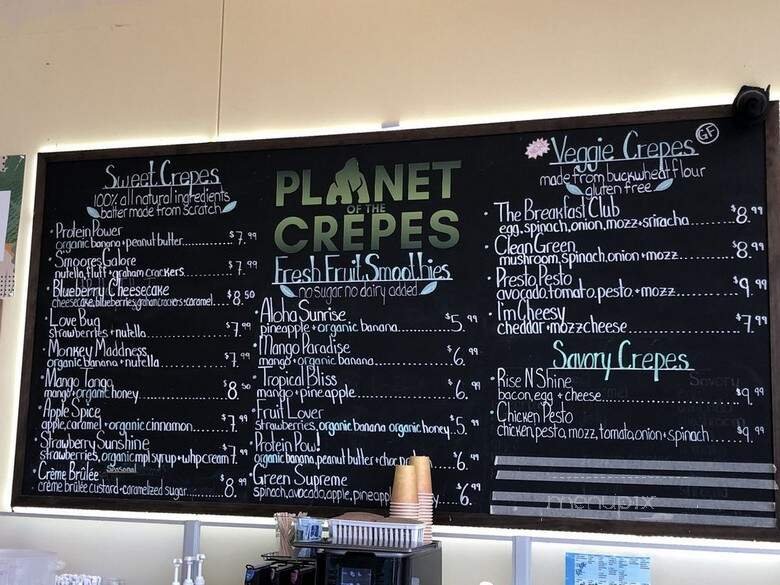 Sweet Crepes
100% all natural ingredients
batter made from scratch
• Protein Power
organic banana + peanut butter.......... $7.99
• Smoores Galore
nutella, fluff + graham crackers.......... $7.99
• Blueberry Cheesecake
cheesecake, blueberries, graham crackers + caramel.... $8.50
• Love Bug
strawberries + nutella.......... $7.99
• Monkey Maddness
organic banana + nutella.......... $7.99
• Mango Tango
mango + organic honey.......... $8.50
• Apple Spice
apple, caramel + organic cinnamon.......... $7.99
• Strawberry Sunshine
strawberries, organic mpl syrup + whp cream. 7.99
• Crème Brûlée Seasonal
crème brûlée custard + caramelized sugar.......... $8.99
PLANET
OF THE
CREPES
Fresh Fruit Smoothies
no sugar no dairy added
• Aloha Sunrise
pineapple + organic banana.......... $5.99
• Mango Paradise
mango + organic banana.......... $6.99
• Tropical Bliss
mango + pineapple.......... $6.99
• Fruit Lover
strawberries, organic banana organic honey... $5.99
• Protein Pow!
organic banana, peanut butter + $6.99
• Green Supreme
spinach, avocado, apple, $6.99
Veggie Crepes GF
made from buckwheat flour
gluten free
• The Breakfast Club
egg, spinach, onion, mozz + sriracha.......... $8.99
• Clean Green
mushroom, spinach, onion + mozz.......... $8.99
• Presto Pesto
avocado, tomato, pesto. + mozz.......... $9.99
• I'm Cheesy
cheddar + mozz cheese.......... $7.99
Savory Crepes
• Rise N Shine
bacon, egg + cheese.......... $9.99
• Chicken Pesto
chicken, pesto, mozz, tomato, onion + spinach.......... $9.99
menupix